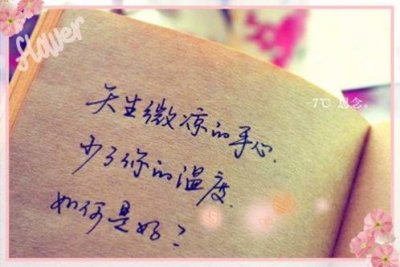 flower
天生微凉的手心.
少了你的温度.
如何是好?
-7℃ 思念。